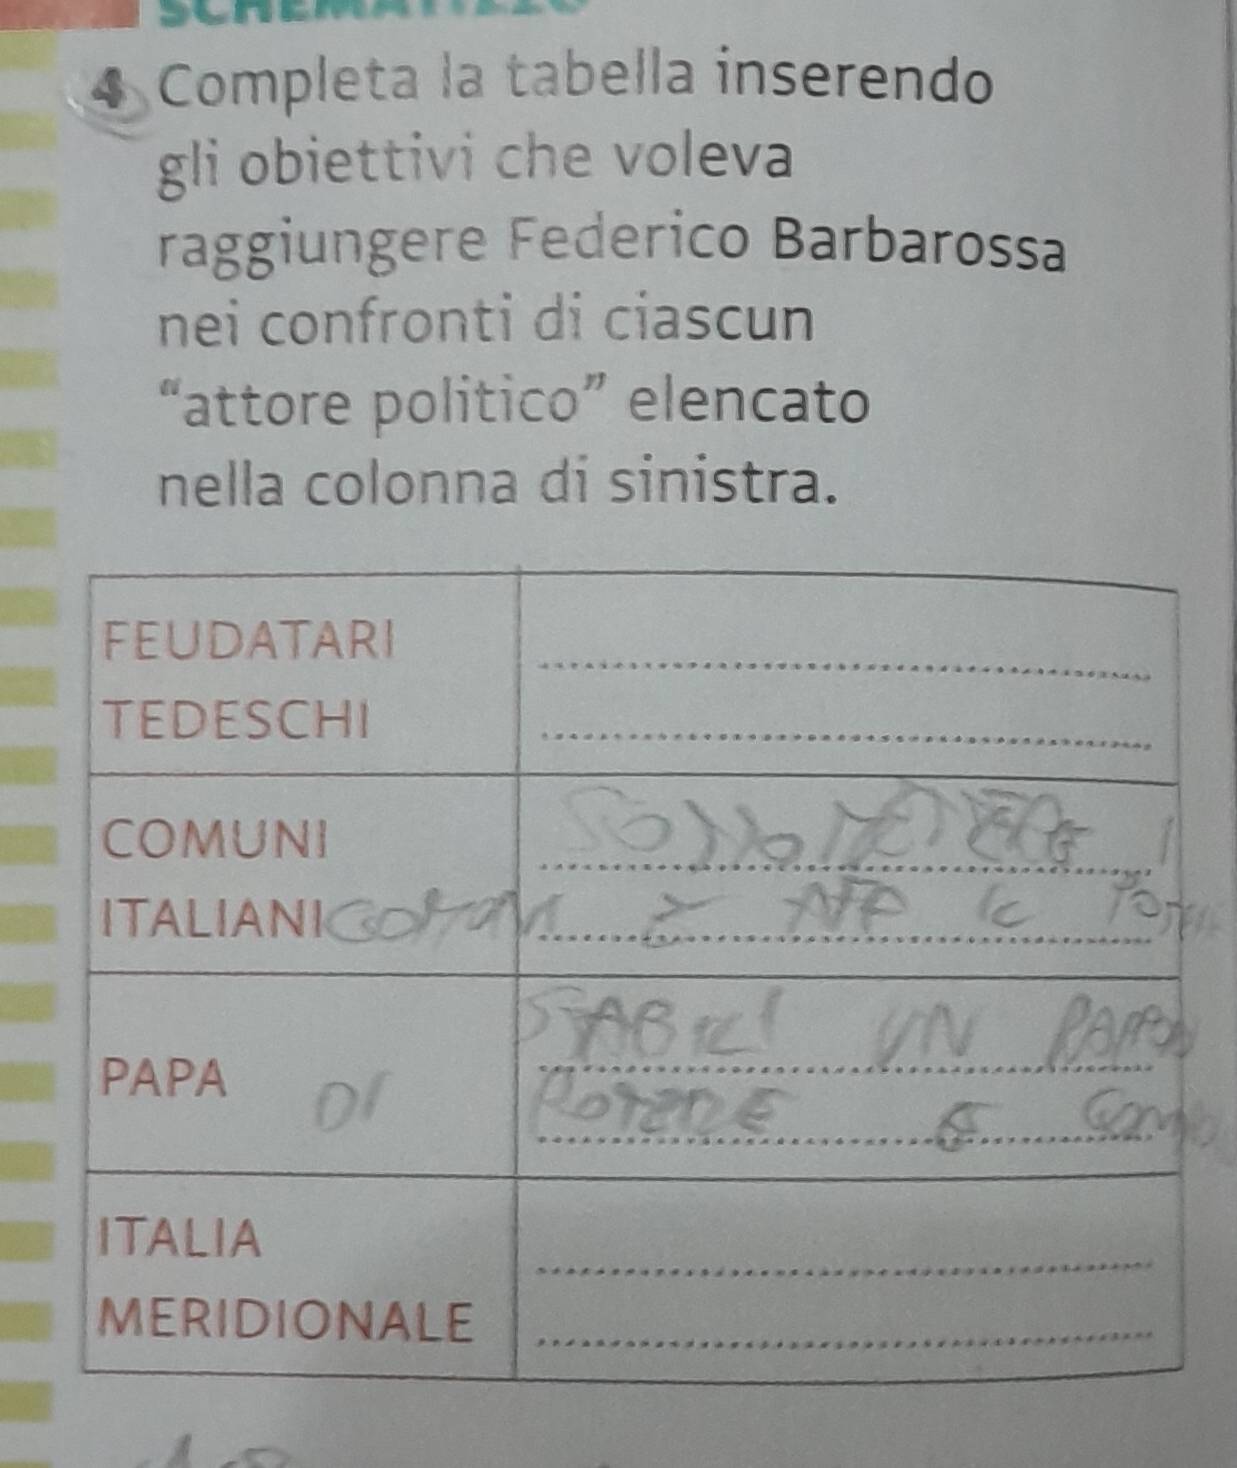 SCHEMATIZZO
4 Completa la tabella inserendo
gli obiettivi che voleva
raggiungere Federico Barbarossa
nei confronti di ciascun
"attore politico" elencato
nella colonna di sinistra.
FEUDATARI
TEDESCHI
COMUNI
ITALIANI
PAPA
DI
STABILI UN
POTERE E
ITALIA
MERIDIONALE